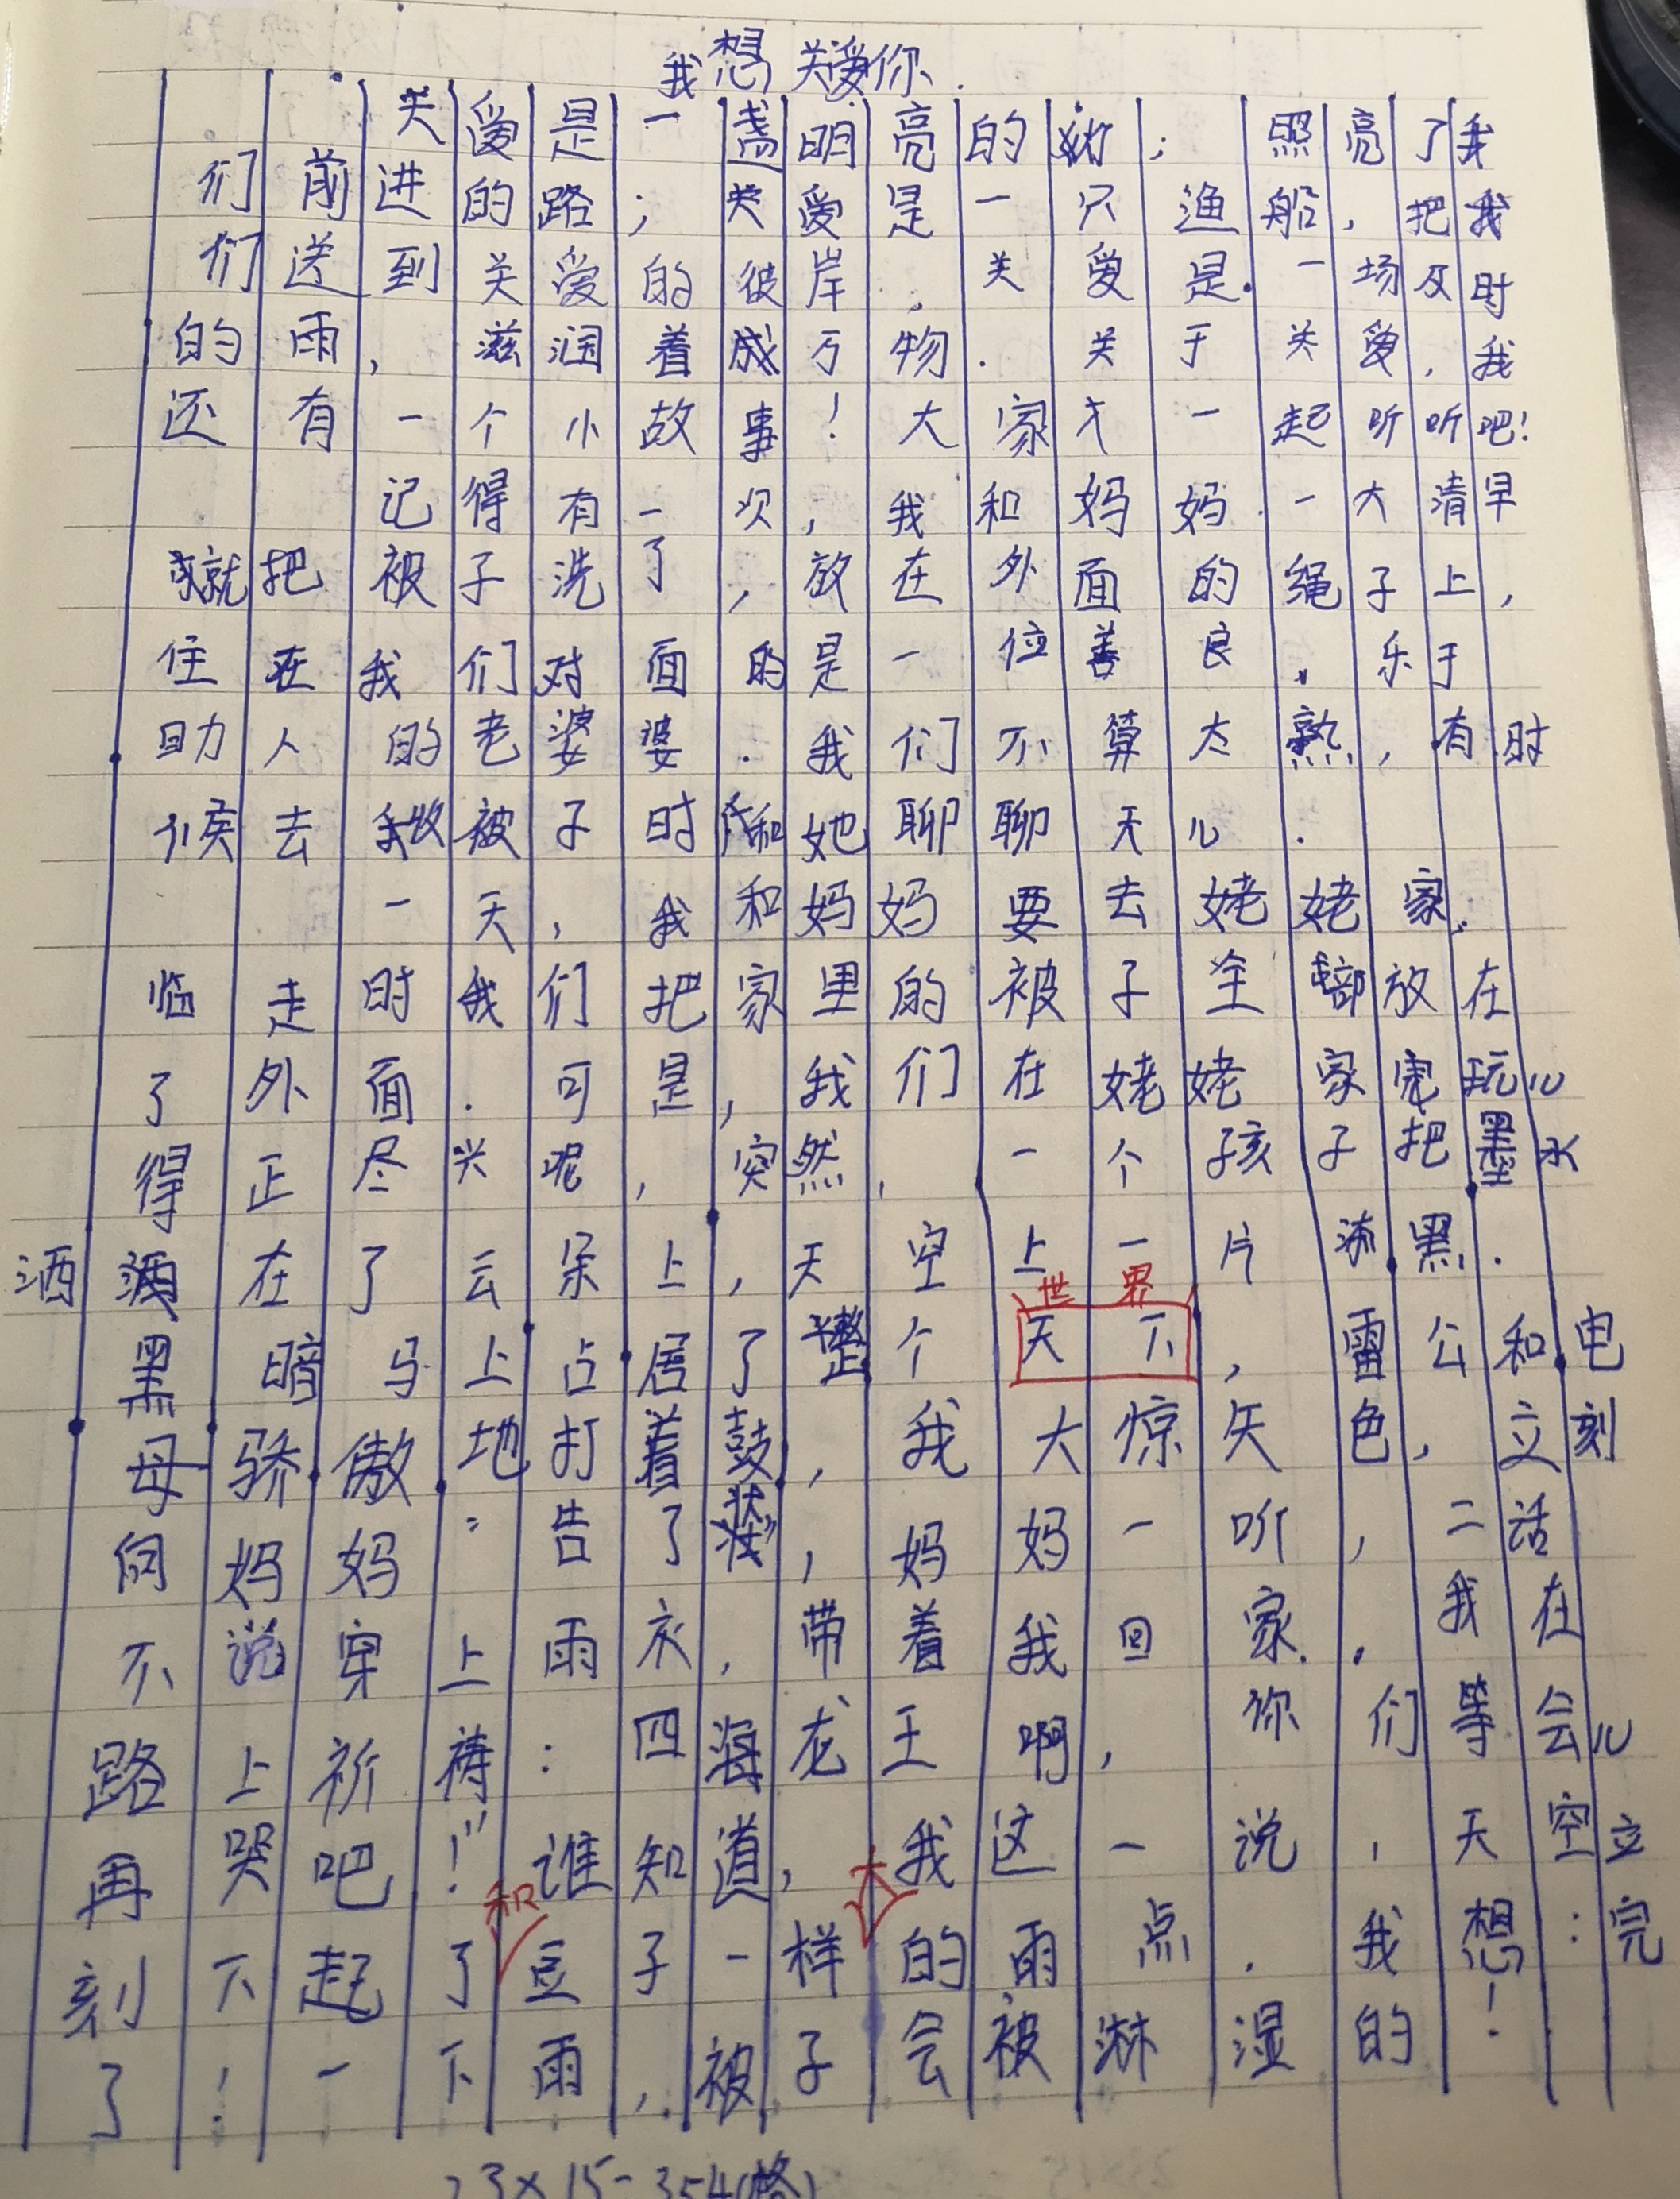 我想关爱你.
关爱是一盏明亮的灯;照亮了我
们前进的路;关爱是一只渔船,把我
们送到关爱的彼岸,关爱是一场及时
的雨,滋润着万物.关于关爱,我
还有一个小故事!大家才一起听听吧!
记得有一次,我和妈妈一大清早
就把被子洗了,放在外面的绳子上,
住在我们对面的是一位善良.乐于
助人的老婆婆.我们不算太熟,有时
候去收被子时和她聊聊天儿.
一天,我和妈妈要去姥姥家.
临走时我们把家里的被子全部放在
了外面.可是,我们在姥姥家玩儿
得正尽兴呢,突然,一个孩子把墨水
洒在了云朵上,天空上一片漆黑.
世界
黑暗马上占居了整个天下,雷公和电
母骄傲地打着鼓,我大惊失色,立刻
向妈妈告了状,妈妈一听,二话
不说穿上雨衣,带着我回家.我在
路上祈祷:四海龙王啊,你们等会儿
再哭吧!”谁知道,我这一说,天空立
和 大
刻下起了豆子一样的雨点.我想:完
了!一下雨,被子会被淋湿的!
23×15-354(格)